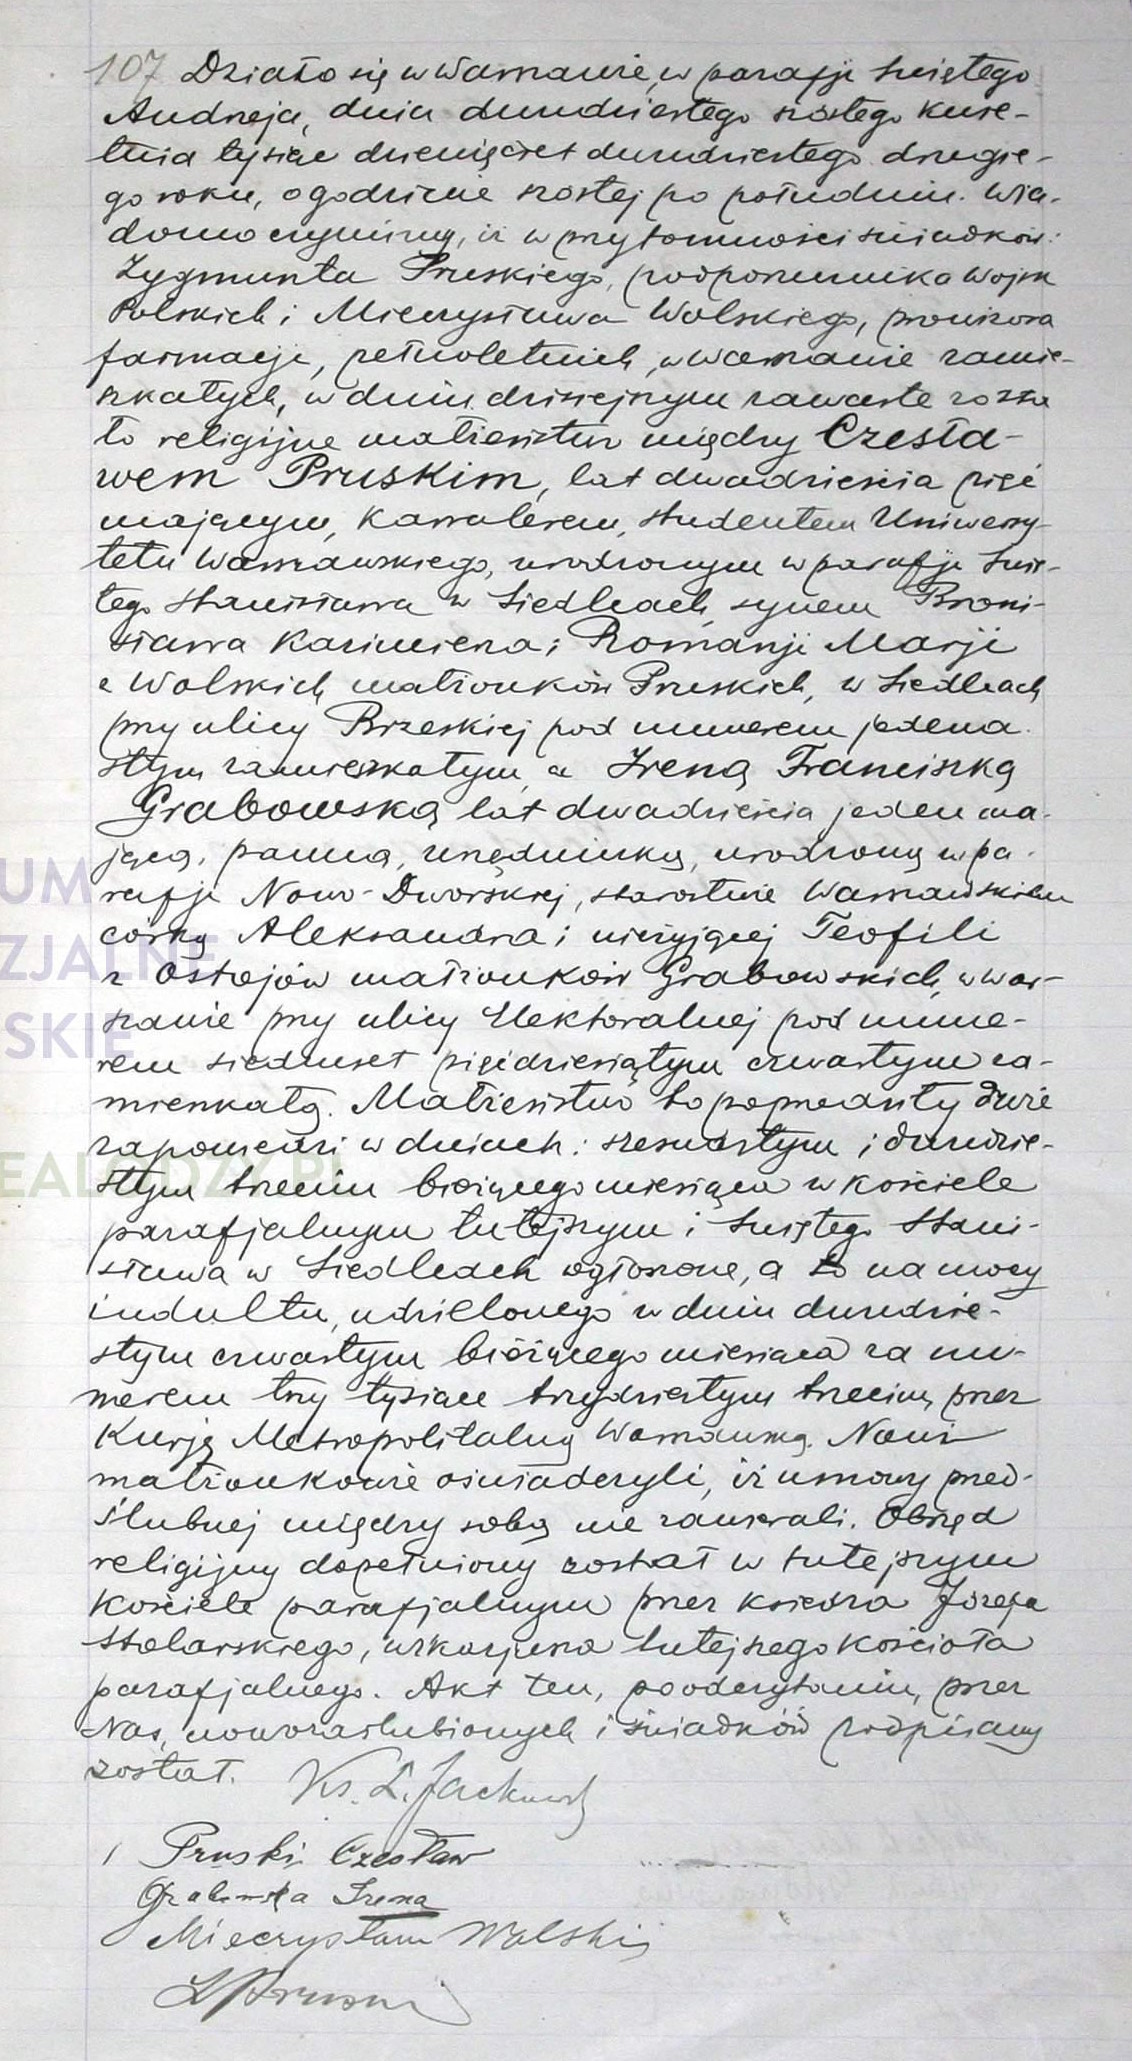 107 Działo się w Warszawie, w parafji świętego
Andrzeja, dnia dwudziestego szóstego kwie-
tnia tysiąc dziewięćset dwudziestego drugie-
go roku, o godzinie szóstej po południu. Wia-
domo czynimy, iż w przytomności świadków:
Zygmunta Pruskiego, podporucznika Wojsk
Polskich i Mieczysława Wolskiego, prowizora
farmacji, pełnoletnich, w Warszawie zamie-
szkałych, w dniu dzisiejszym zawarte zosta
ło religijne małżeństwo między Czesła-
wem Pruskim, lat dwadzieścia pięć
mającym, kawalerem, studentem Uniwersy-
tetu Warszawskiego, urodzonym w parafji świę-
tego Stanisława w Siedlcach, synem Broni-
sława Kazimierza i Romanji Marji
z Wolskich małżonków Pruskich, w Siedlcach
przy ulicy Brzeskiej pod numerem jedena-
stym zamieszkałym, a Ireną Franciszką
Grabowską lat dwadzieścia jeden ma-
jącą, panną, urzędniczką, urodzoną w pa-
rafji Nowo-Dworskiej, starostwie Warszawskiem
córką Aleksandra i nieżyjącej Teofili
z Ostojów małżonków Grabowskich, w War-
szawie przy ulicy Elektoralnej pod nume-
rem siedmset pięćdziesiątym czwartym za-
mieszkałą. Małżeństwo to poprzedziły dwie
zapowiedzi w dniach: szesnastym i dwudzie-
stym trzecim bieżącego miesiąca w kościele
parafjalnym tutejszym i świętego Stani-
sława w Siedlcach ogłoszone, a to na mocy
indultu, udzielonego w dniu dwudzie-
stym czwartym bieżącego miesiąca za nu-
merem trzy tysiące trzydziestym trzecim, przez
Kurję Metropolitalną Warszawską. Nowi
małżonkowie oświadczyli, iż umowy przed-
ślubnej między sobą nie zawierali. Obrzęd
religijny dopełniony został w tutejszym
kościele parafjalnym przez księdza Józefa
Stolarskiego, wikarjusza tutejszego kościoła
parafjalnego. Akt ten, po odczytaniu, przez
Nas, nowozaślubionych i świadków podpisany
został. Ks. L. Jackowski
Pruski Czesław
Grabowska Irena
Mieczysław Wolski
Z Pruski
UM
ZJALNE
SKIE
EALODZY.PL